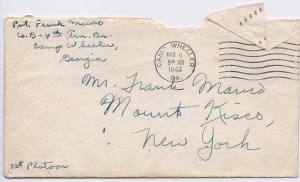 Pvt. Frank Mauro
Co. B - 4th Trn. Bn.
Camp Wheeler,
Georgia
CAMP WHEELER
1943
GA.
Mr. Frank Mauro
Mount Kisco,
New York
1st Platoon